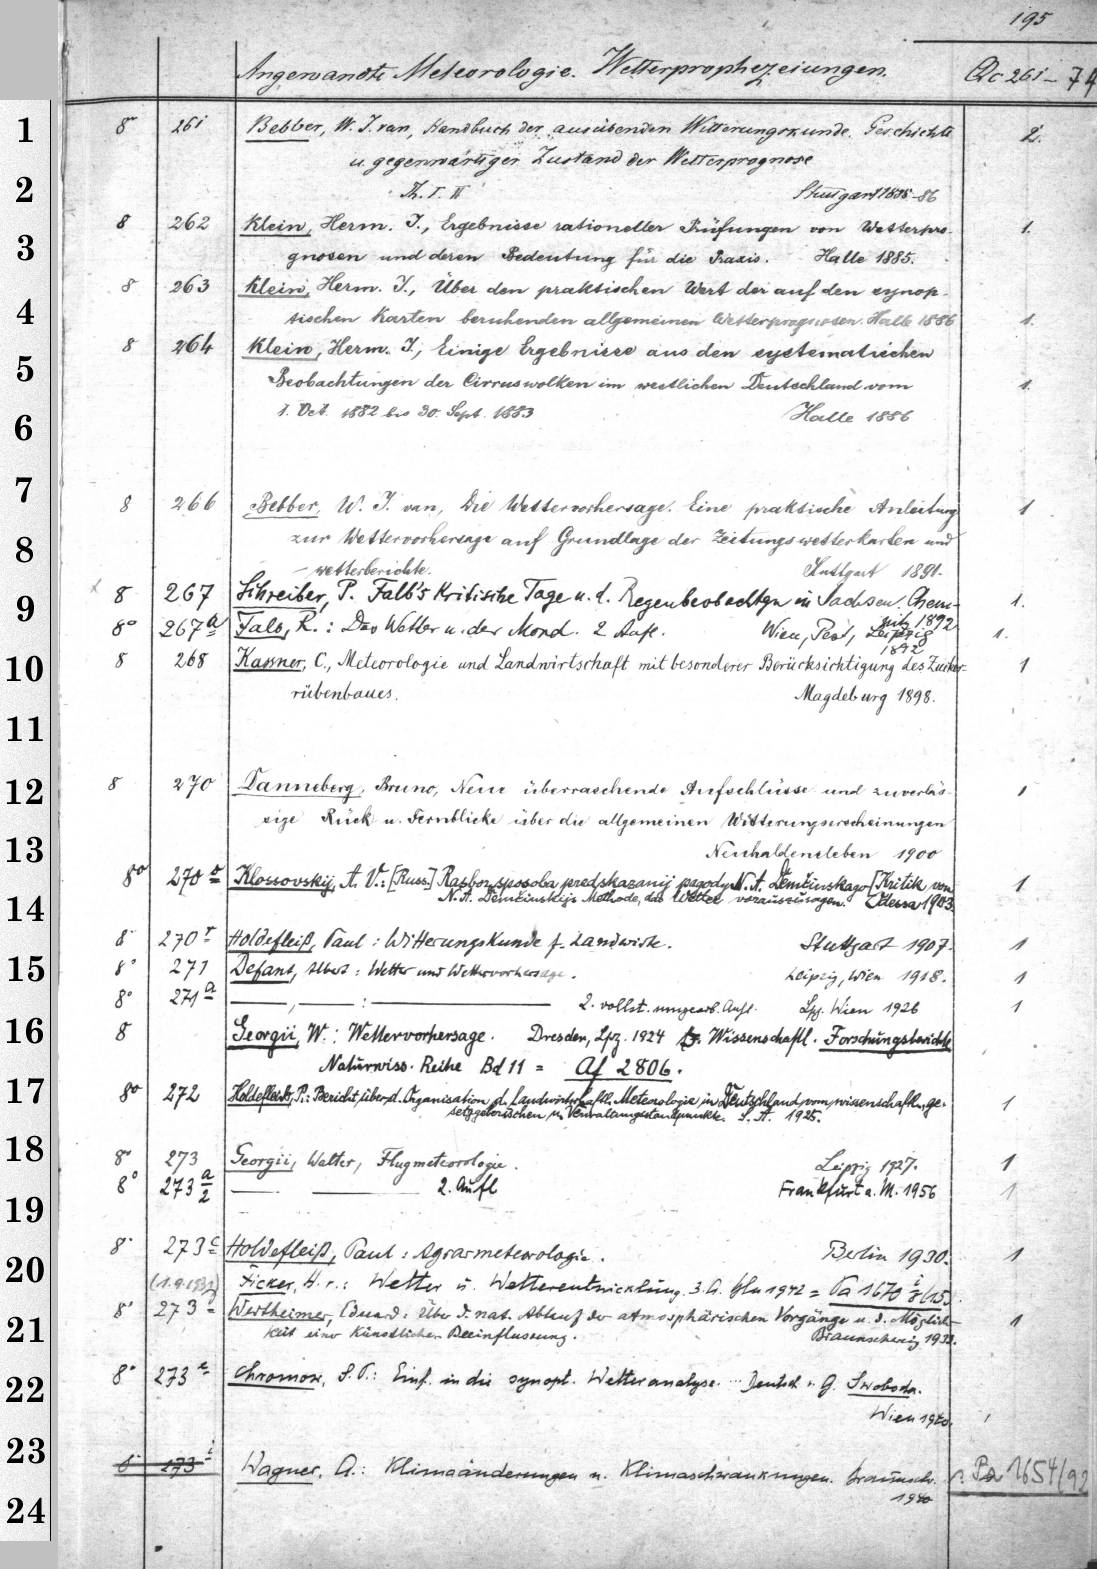 195
Angewandte Meteorologie. Wetterprophezeiungen. Qc 261-74
1 8° 261 Bebber, W. J. van, Handbuch der ausübenden Witterungskunde. Geschichte 2.
u. gegenwärtiger Zustand der Wetterprognose
2 Th. I. II Stuttgart 1885-86
8 262 Klein, Herm. J., Ergebnisse rationeller Prüfungen von Wetterpro- 1.
3 gnosen und deren Bedeutung für die Praxis. Halle 1885.
8 263 Klein, Herm. J., Über den praktischen Wert der auf den synop-
4 tischen Karten beruhenden allgemeinen Wetterprognosen. Halle 1886 1.
8 264 Klein, Herm. J., Einige Ergebnisse aus den systematischen
5 Beobachtungen der Cirruswolken im westlichen Deutschland vom 1.
6 1. Oct. 1882 bis 30. Sept. 1883 Halle 1886
7
8 266 Bebber, W. J. van, Die Wettervorhersage. Eine praktische Anleitung 1
8 zur Wettervorhersage auf Grundlage der Zeitungswetterkarten und
- wetterberichte. Stuttgart 1891.
9 8 267 Schreiber, P. Falb's Kritische Tage u. d. Regenbeobachtgn in Sachsen. Chem- 1.
nitz 1892
8° 267a Falb, R.: Das Wetter u. der Mond. 2 Aufl. Wien, Pest, Leipzig 1.
1892
10 8 268 Kassner, C., Meteorologie und Landwirtschaft mit besonderer Berücksichtigung des Zucker- 1
rübenbaues. Magdeburg 1898.
11
12 8 270 Danneberg, Bruno, Neue überraschende Aufschlüsse und zuverläs- 1
sige Rück u. Fernblicke über die allgemeinen Witterungserscheinungen
13 Neuhaldensleben 1900
8° 270 Klossovskij, A. V.: [Russ.] Razbor sposoba predskazanij pogody N. A. Demčinskago [Kritik von 1
14 N. A. Demčinskijs Methode, das Wetter vorauszusagen. Odessa 1903.
8° 270 Holdefleiß, Paul: Witterungskunde f. Landwirte. Stuttgart 1907. 1
15 8° 271 Defant, Albert: Wetter und Wettervorhersage. Leipzig, Wien 1918. 1
8° 271a —, — : — 2. vollst. umgearb. Aufl. Lpz. Wien 1926 1
16 8 Georgii, W.: Wettervorhersage. Dresden, Lpz. 1924 Wissenschaftl. Forschungsberichte
Naturwiss. Reihe Bd 11 = Af 2806.
17 8° 272 Holdefleiß, P.: Bericht über d. Organisation d. landwirtschaftl. Meteorologie in Deutschland vom wissenschaftl., ge- 1
setzgeberischen u. Verwaltungsstandpunkte. S. A. 1925.
18 8° 273 Georgii, Walter, Flugmeteorologie. Leipzig 1927. 1
8° 273 a/2 — — 2. Aufl Frankfurt a. M. 1956 1
19
8° 273c Holdefleiß, Paul: Agrarmeteorologie. Berlin 1930. 1
20 Ficker, H. v.: Wetter u. Wetterentwicklung. 3. A. Bln 1942 = Pa 1670
8° 273 Wertheimer, Eduard: Über d. nat. Ablauf der atmosphärischen Vorgänge u. d. Möglich- 1
21 keit einer künstlicher Beeinflussung. Braunschweig 1933.
22 8° 273e Chromow, S. P.: Einf. in die synopt. Wetteranalyse. Deutsch v. G. Swoboda.
Wien 1940. 1
23 8° 273i Wagner, A.: Klimaänderungen u. Klimaschwankungen. Braunschw. Pa 1654/92
1940
24